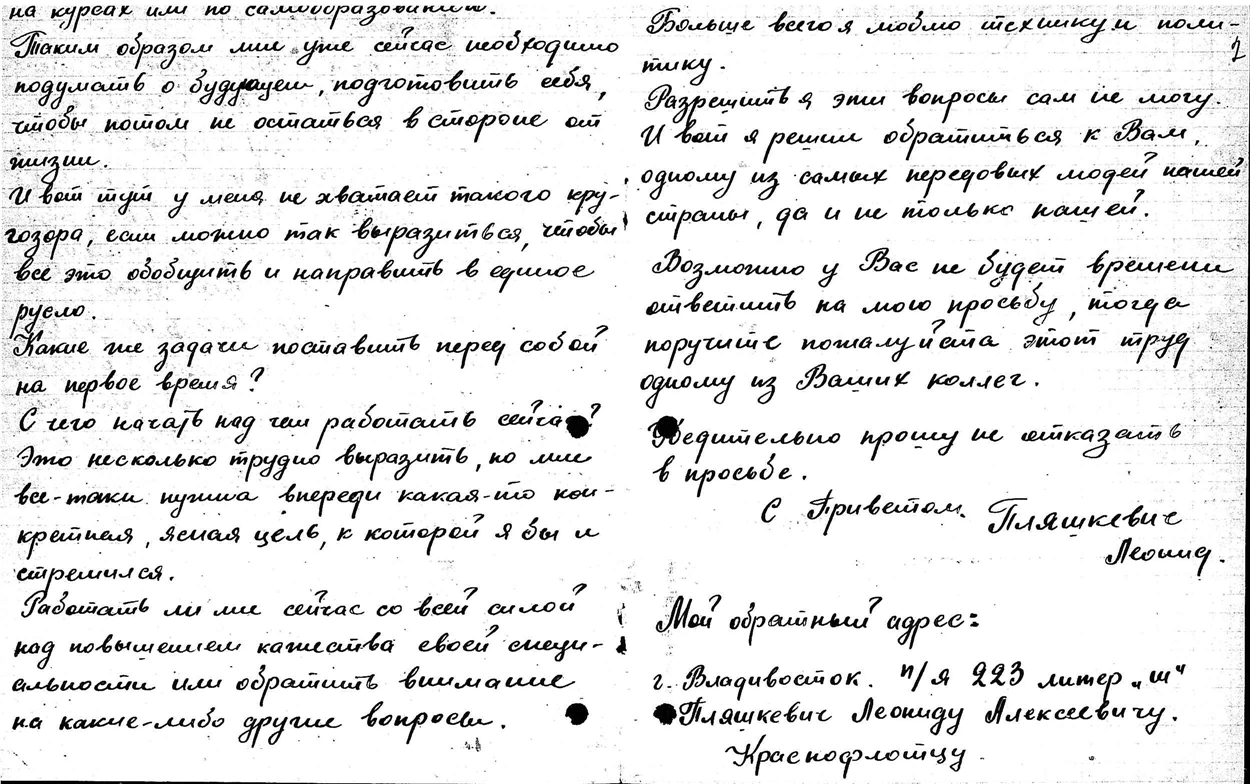 на курсах или по самообразованию.
Таким образом мне уже сейчас необходимо
подумать о будующем, подготовить себя,
чтобы потом не остаться в стороне от
жизни.
И вот тут у меня не хватает такого кру-
гозора, если можно так выразиться, чтобы
все это обобщить и направить в единое
русло.
Какие же задачи поставить перед собой
на первое время?
С чего начать над чем работать сейчас?
Это несколько трудно выразить, но мне
все-таки нужна впереди какая-то кон-
кретная, ясная цель, к которой я бы и
стремился.
Работать ли мне сейчас со всей силой
над повышением качества своей специ-
альности или обратить внимание
на какие-либо другие вопросы.
2
Больше всего я люблю технику и поли-
тику.
Разрешить я эти вопросы сам не могу.
И вот я решил обратиться к Вам,
одному из самых передовых людей нашей
страны, да и не только нашей.
Возможно у Вас не будет времени
ответить на мою просьбу, тогда
поручите пожалуйста этот труд
одному из Ваших коллег.
Убедительно прошу не отказать
в просьбе.
С Приветом. Пляшкевич
Леонид.
Мой обратный адрес:
г. Владивосток. п/я 223 литер „ш"
Пляшкевич Леониду Алексеевичу.
Краснофлотцу